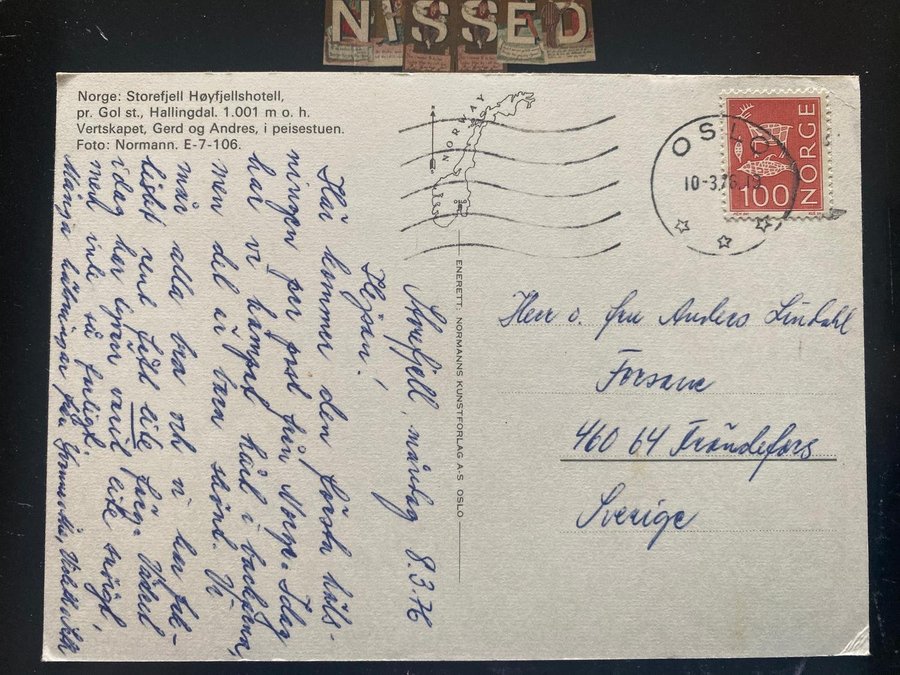 NISSED
Norge: Storefjell Høyfjellshotell,
pr. Gol st., Hallingdal. 1.001 m o. h.
Vertskapet, Gerd og Andres, i peisestuen.
Foto: Normann. E-7-106.
NORWAY
OSLO
OSLO
10-3.76.19
NORGE
100
ENERETT: NORMANNS KUNSTFORLAG A-S OSLO
Storefjell, måndag 8.3.76
Hejsan!
Här kommer den första häls-
ningen per post från Norge. Idag
har vi kämpat hård i backarna,
men det är bara skönt. Vi
mår alla bra och vi har fak-
tiskt rent fått lite färg. Vädret
idag har varit lite snöigt,
men inte så farligt.
Många hälsningar från
Herr o. fru Anders Lindahl
Forsane
460 64 Frändefors
Sverige